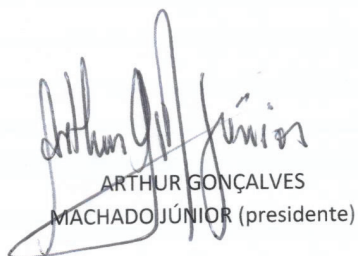 Arthur G M Júnior
ARTHUR GONÇALVES
MACHADO JÚNIOR (presidente)